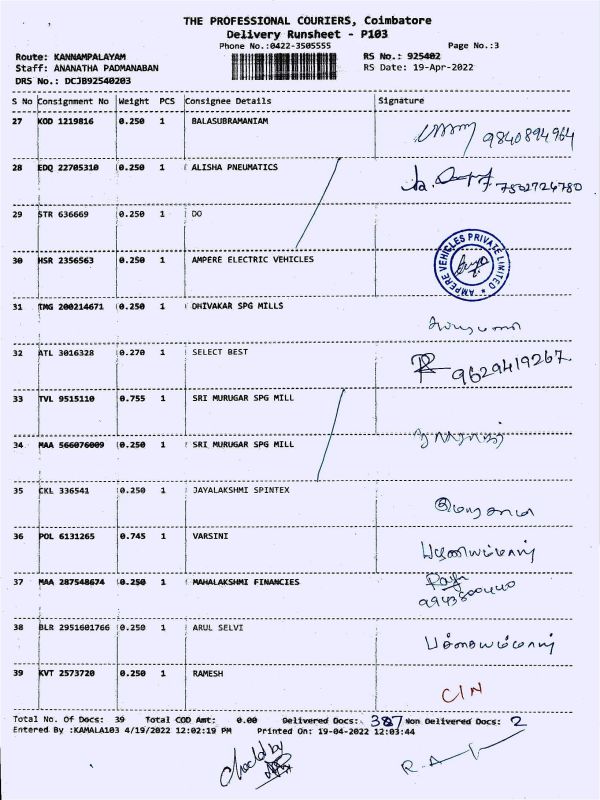 THE PROFESSIONAL COURIERS, Coimbatore
Delivery Runsheet - P103
Phone No.:0422-3505555 Page No.:3
Route: KANNAMPALAYAM RS No.: 925402
Staff: ANANATHA PADMANABAN RS Date: 19-Apr-2022
DRS No.: DCJB92540203
S No Consignment No Weight PCS Consignee Details Signature
27 KOD 1219816 0.250 1 BALASUBRAMANIAM
9840894964
28 EDQ 22705310 0.250 1 ALISHA PNEUMATICS
7502726780
29 STR 636669 0.250 1 DO
30 HSR 2356563 0.250 1 AMPERE ELECTRIC VEHICLES
AMPERE VEHICLES PRIVATE LIMITED
31 TMG 200214671 0.250 1 DHIVAKAR SPG MILLS
32 ATL 3016328 0.270 1 SELECT BEST
9629419267
33 TVL 9515110 0.755 1 SRI MURUGAR SPG MILL
34 MAA 566076009 0.250 1 SRI MURUGAR SPG MILL
35 CKL 336541 0.250 1 JAYALAKSHMI SPINTEX
36 POL 6131265 0.745 1 VARSINI
37 MAA 287548674 0.250 1 MAHALAKSHMI FINANCIES
38 BLR 2951601766 0.250 1 ARUL SELVI
39 KVT 2573720 0.250 1 RAMESH
C/N
Total No. Of Docs: 39 Total COD Amt: 0.00 Delivered Docs: 37 Non Delivered Docs: 2
Entered By :KAMALA103 4/19/2022 12:02:19 PM Printed On: 19-04-2022 12:03:44
Checked by